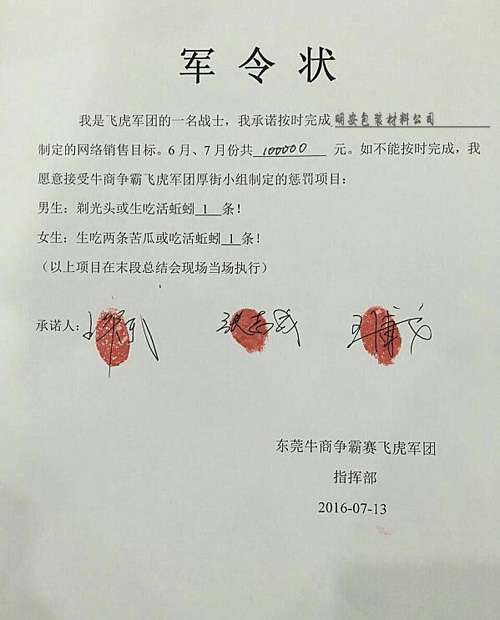 军令状
我是飞虎军团的一名战士，我承诺按时完成明安包装材料公司
制定的网络销售目标。6月、7月份共 100000 元。如不能按时完成，我
愿意接受牛商争霸飞虎军团厚街小组制定的惩罚项目：
男生：剃光头或生吃活蚯蚓 1 条！
女生：生吃两条苦瓜或吃活蚯蚓 1 条！
（以上项目在末段总结会现场当场执行）
承诺人：
东莞牛商争霸赛飞虎军团
指挥部
2016-07-13